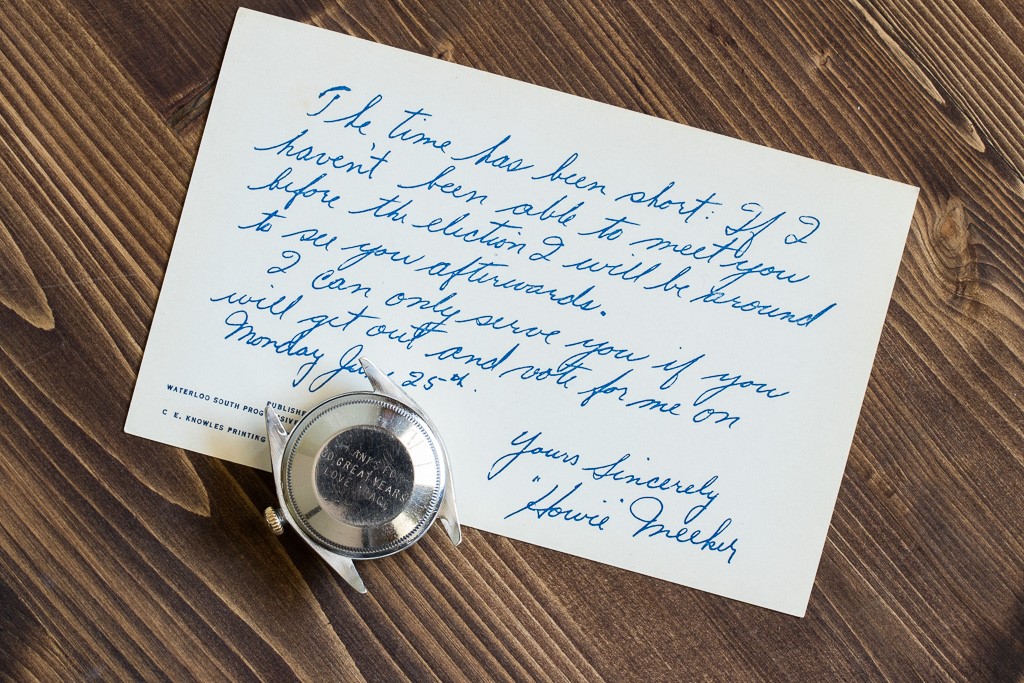 The time has been short: If I
haven't been able to meet you
before the election I will be around
to see you afterwards.
I can only serve you if you
will get out and vote for me on
Monday 25th.
Yours Sincerely
"Howie" Meeker
PUBLISHE
WATERLOO SOUTH PROG
C. E. KNOWLES PRINTING
GREAT YEARS
LOVE